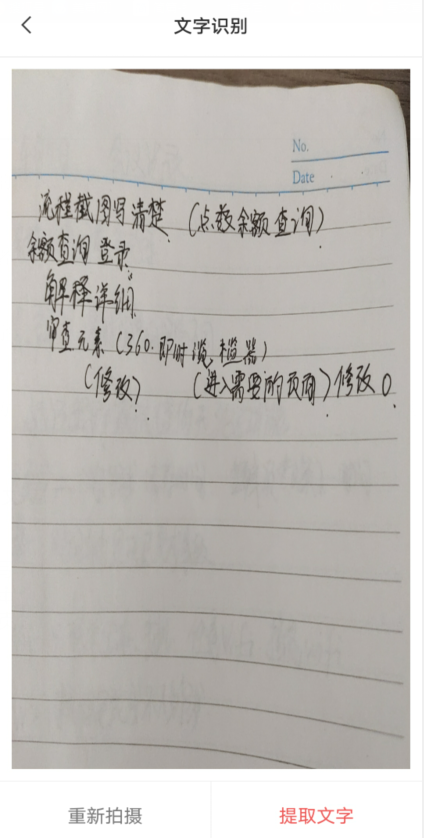 文字识别
No.
Date
流程截图写清楚(点数余额查询)
余额查询 登录
解释详细
审查元素(360.即时
(修改) (进入需要的页面)修改
重新拍摄
提取文字